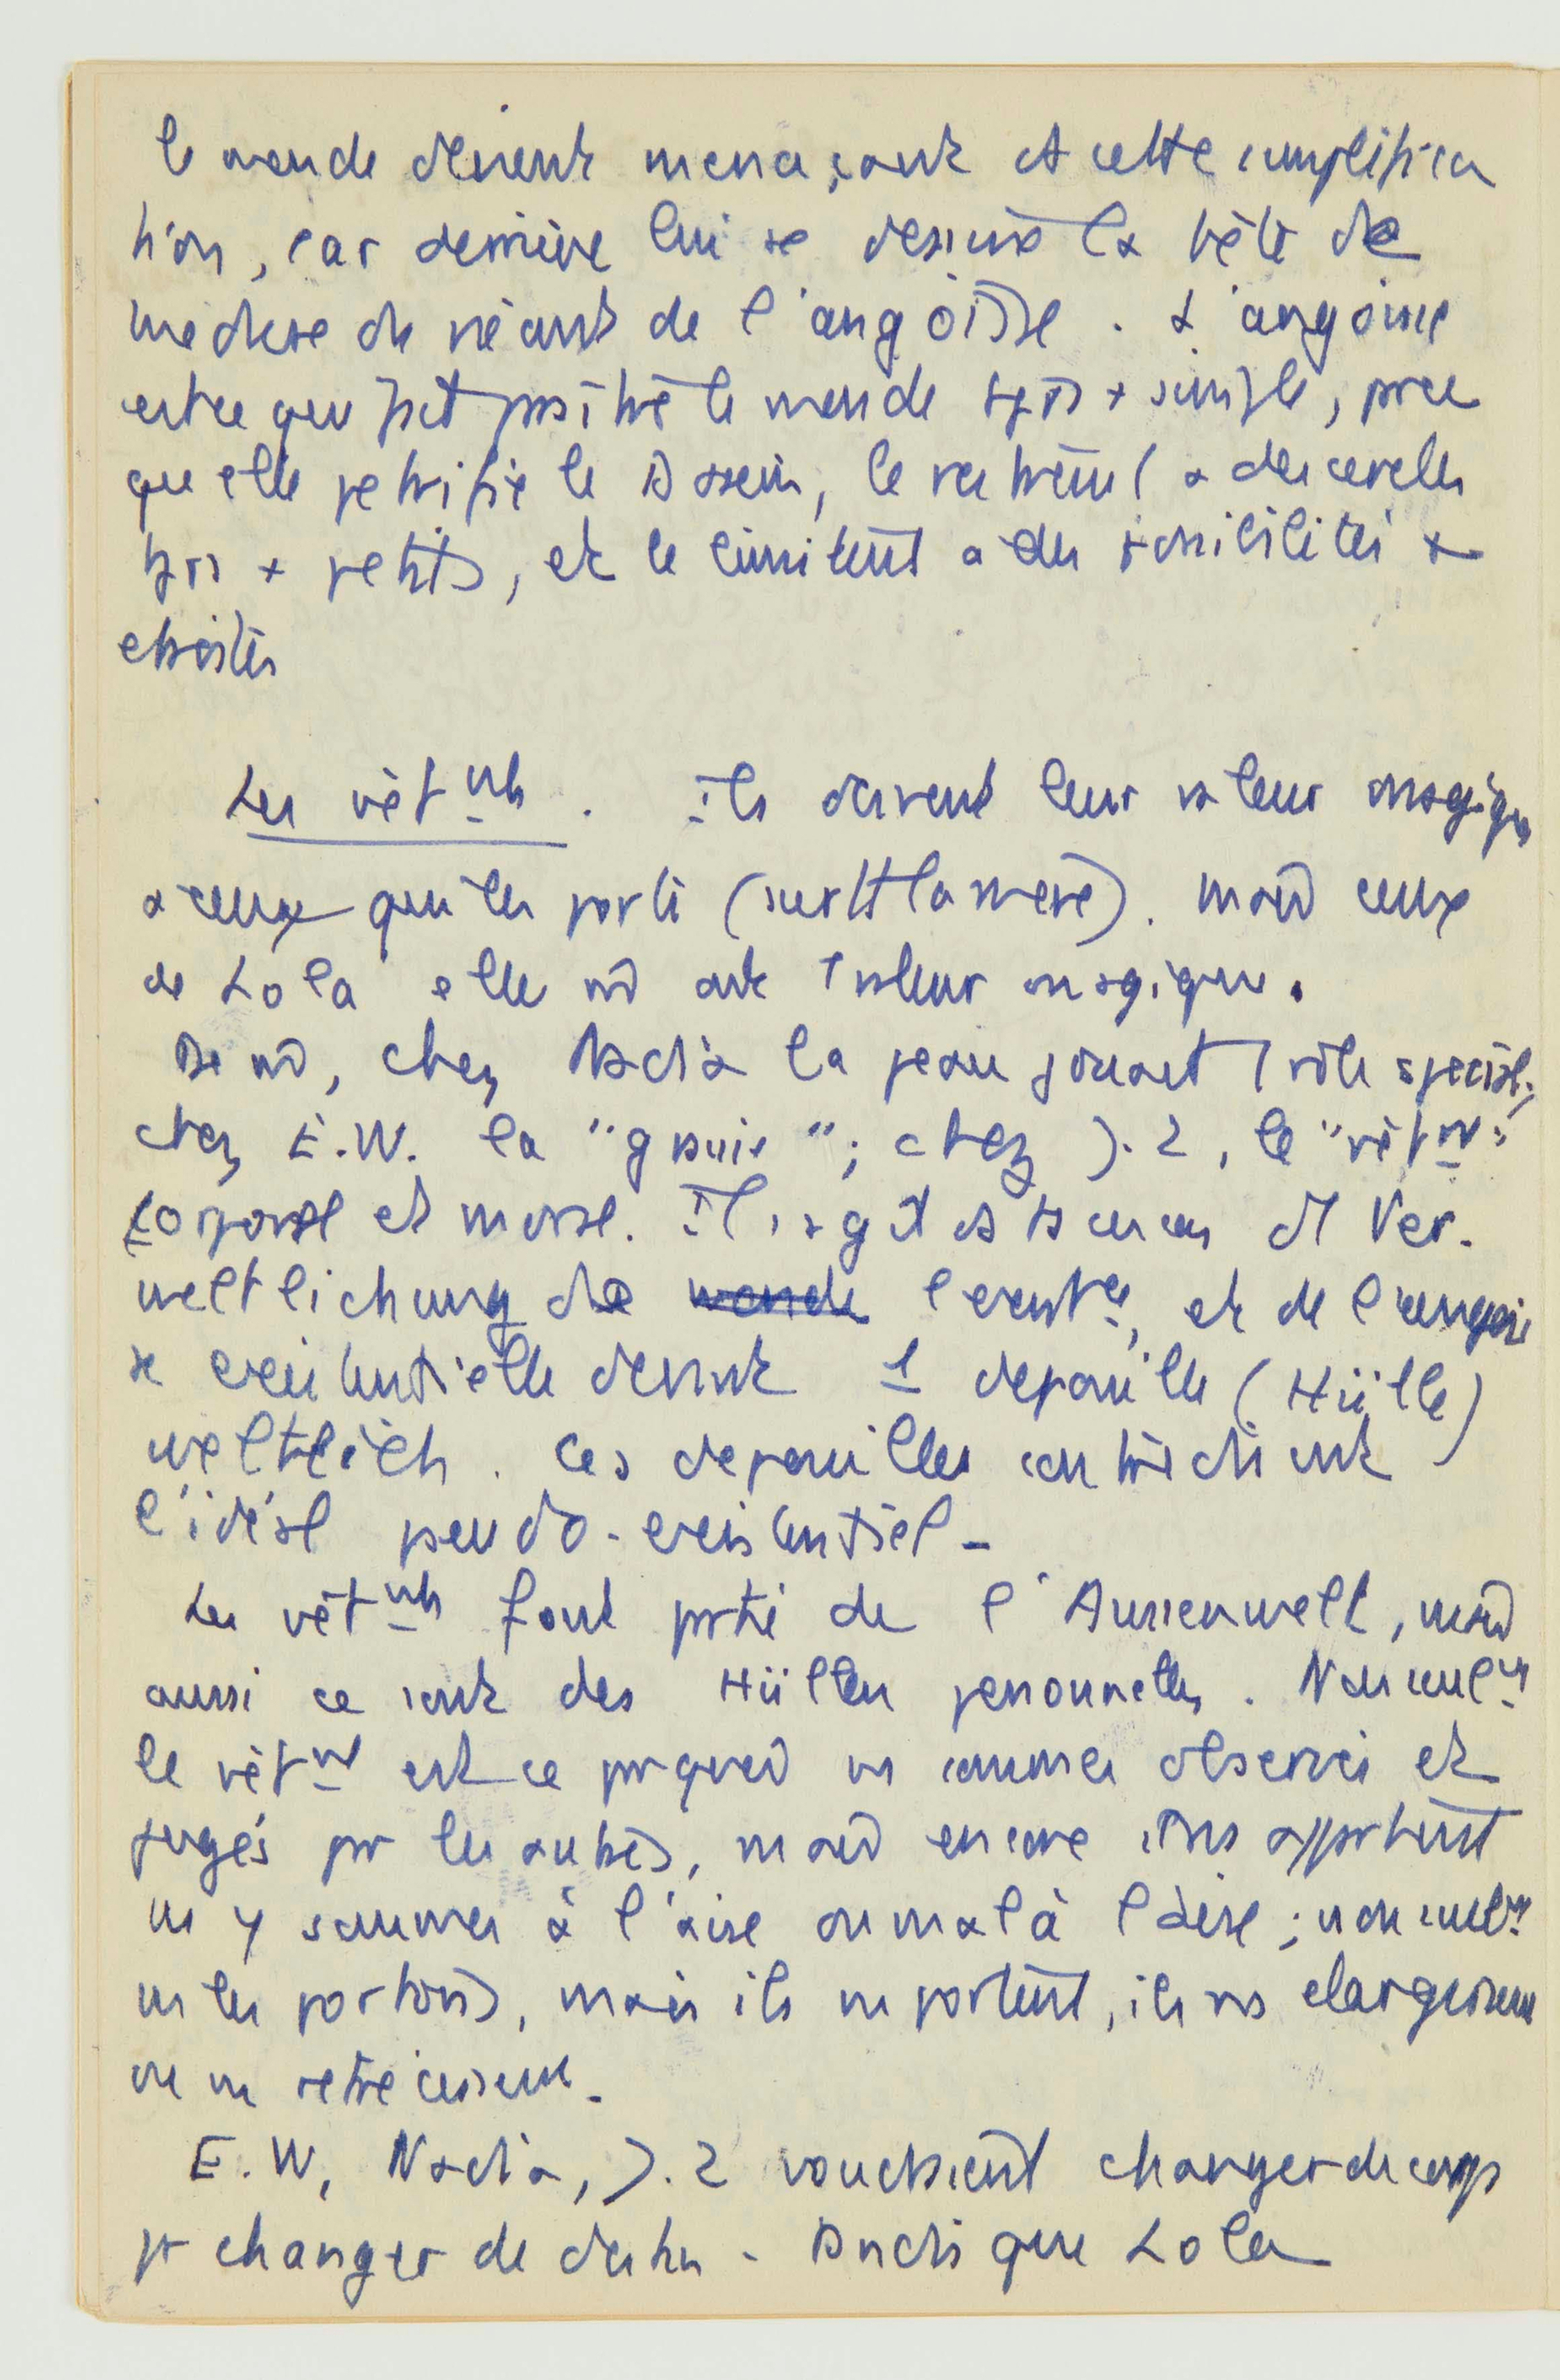 le monde devient menaçant et cette simplifica
tion, car derrière lui se dessine la tête de
méduse du néant de l'angoisse. L'angoisse
est ce qui fait postiche le monde tjrs + simple, prce
qu elle petrifie le Dasein, le restreint a des cercles
tjrs + petits, et le limitent a des possibilités +
etroites
Les vêtmts. Ils doivent leur valeur magique
a ceux qui les porte (surtt la mere). mais ceux
de Lola elle mm ont 1 valeur magique.
De mm, chez Nadia la peau jouait 1 rôle special;
chez E.W. la "graisse"; chez J.Z, le "vêtmt"
corporel et moral. Il s agit ds ts ces cas d Ver-
weltlichung de l existce, et de l angois
se existentielle devient 1 depouille (Hülle)
weltlich. Ces depouilles contredisent
l'idéal pseudo-existentiel-
Les vêtmts font prtie de l'Aussenwelt, mais
aussi ce sont des Hüllen personnelles. Non seulmt
le vêtmt est ce pr quoi ns sommes observés et
jugés pr les autres, mais encore ils ns apprtient
ns y sommes à l'aise ou mal à l'aise; non seulmt
ns les portons, mais ils ns portent, ils ns elargissent
ou ns retrécissent-
E.W, Nadia, J.Z voudraient changer de corps
pr changer de destin- tndis que Lola